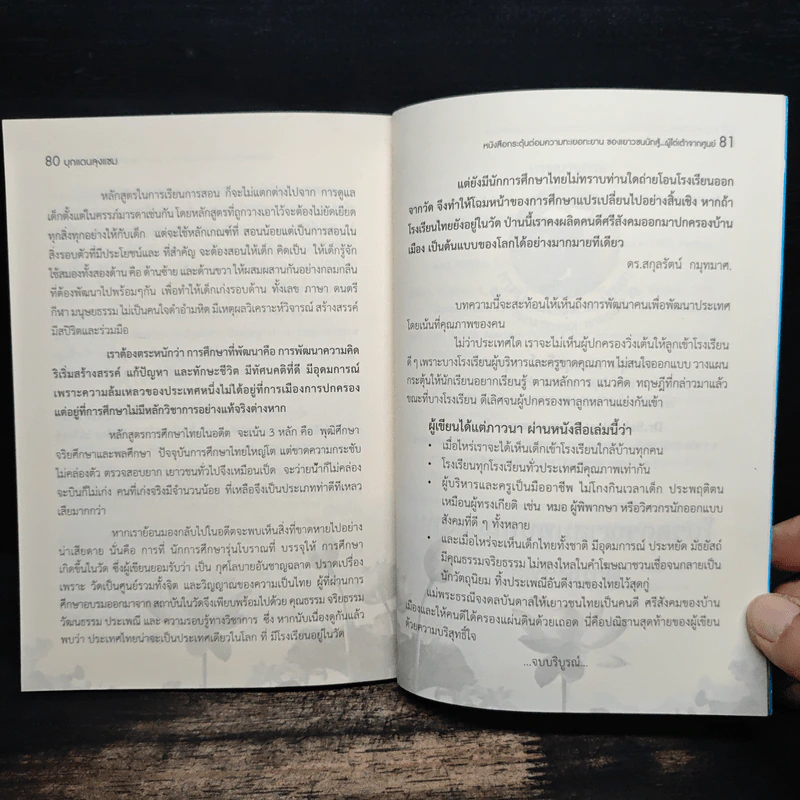 80 บุกแดนลุงแซม
หลักสูตรในการเรียนการสอน ก็จะไม่แตกต่างไปจาก การดูแล
เด็กตั้งแต่ในครรภ์มารดาเช่นกัน โดยหลักสูตรที่ถูกวางเอาไว้จะต้องไม่ยัดเยียด
ทุกสิ่งทุกอย่างให้กับเด็ก แต่จะใช้หลักเกณฑ์ที่ สอนน้อยแต่เป็นการสอนใน
สิ่งรอบตัวที่มีประโยชน์และ ที่สำคัญ จะต้องสอนให้เด็ก คิดเป็น ให้เด็กรู้จัก
ใช้สมองทั้งสองด้าน คือ ด้านซ้าย และด้านขวา ให้ผสมผสานกันอย่างกลมกลืน
ที่ต้องพัฒนาไปพร้อมๆกัน เพื่อทำให้เด็กเก่งรอบด้าน ทั้งเลข ภาษา ดนตรี
กีฬา มนุษยธรรม ไม่เป็นคนใจดำอำมหิต มีเหตุผลวิเคราะห์วิจารณ์ สร้างสรรค์
มีสปิริตและร่วมมือ
เราต้องตระหนักว่า การศึกษาที่พัฒนาคือ การพัฒนาความคิด
ริเริ่มสร้างสรรค์ แก้ปัญหา และทักษะชีวิต มีทัศนคติที่ดี มีอุดมการณ์
เพราะความล้มเหลวของประเทศหนึ่งไม่ได้อยู่ที่การเมืองการปกครอง
แต่อยู่ที่การศึกษาไม่มีหลักวิชาการอย่างแท้จริงต่างหาก
หลักสูตรการศึกษาไทยในอดีต จะเน้น 3 หลัก คือ พุฒิศึกษา
จริยศึกษาและพลศึกษา ปัจจุบันการศึกษาไทยใหญ่โต แต่ขาดความกระชับ
ไม่คล่องตัว ตรวจสอบยาก เยาวชนทั่วไปจึงเหมือนเป็ด จะว่ายน้ำก็ไม่คล่อง
จะบินก็ไม่เก่ง คนที่เก่งจริงมีจำนวนน้อย ที่เหลือจึงเป็นประเภทท่าดีทีเหลว
เสียมากกว่า
หากเราย้อนมองกลับไปในอดีตจะพบเห็นสิ่งที่ขาดหายไปอย่าง
น่าเสียดาย นั่นคือ การที่ นักการศึกษารุ่นโบราณที่ บรรจุให้ การศึกษา
เกิดขึ้นในวัด ซึ่งผู้เขียนยอมรับว่า เป็น กุศโลบายอันชาญฉลาด ปราดเปรื่อง
เพราะ วัดเป็นศูนย์รวมทั้งจิต และวิญญาณของความเป็นไทย ผู้ที่ผ่านการ
ศึกษาอบรมออกมาจาก สถาบันในวัดจึงเพียบพร้อมไปด้วย คุณธรรม จริยธรรม
วัฒนธรรม ประเพณี และ ความรอบรู้ทางวิชาการ ซึ่ง หากนับเนื่องดูกันแล้ว
พบว่า ประเทศไทยน่าจะเป็นประเทศเดียวในโลก ที่ มีโรงเรียนอยู่ในวัด
หนังสือกระตุ้นต่อมความทะเยอทะยาน ของเยาวชนนักสู้...ผู้ไต่เต้าจากศูนย์ 81
แต่ยังมีนักการศึกษาไทยไม่ทราบท่านใดถ่ายโอนโรงเรียนออก
จากวัด จึงทำให้โฉมหน้าของการศึกษาแปรเปลี่ยนไปอย่างสิ้นเชิง หากถ้า
โรงเรียนไทยยังอยู่ในวัด ป่านนี้เราคงผลิตคนดีศรีสังคมออกมาปกครองบ้าน
เมือง เป็นต้นแบบของโลกได้อย่างมากมายทีเดียว
ดร.สกุลรัตน์ กมุทมาศ.
บทความนี้จะสะท้อนให้เห็นถึงการพัฒนาคนเพื่อพัฒนาประเทศ
โดยเน้นที่คุณภาพของคน
ไม่ว่าประเทศใด เราจะไม่เห็นผู้ปกครองวิ่งเต้นให้ลูกเข้าโรงเรียน
ดีๆ เพราะบางโรงเรียนผู้บริหารและครูขาดคุณภาพ ไม่สนใจออกแบบ วางแผน
กระตุ้นให้นักเรียนอยากเรียนรู้ ตามหลักการ แนวคิด ทฤษฎีที่กล่าวมาแล้ว
ขณะที่บางโรงเรียน ดีเลิศจนผู้ปกครองพาลูกหลานแย่งกันเข้า
ผู้เขียนได้แต่ภาวนา ผ่านหนังสือเล่มนี้ว่า
• เมื่อไหร่เราจะได้เห็นเด็กเข้าโรงเรียนใกล้บ้านทุกคน
• โรงเรียนทุกโรงเรียนทั่วประเทศมีคุณภาพเท่ากัน
• ผู้บริหารและครูเป็นมืออาชีพ ไม่โกงกินเวลาเด็ก ประพฤติตน
เหมือนผู้ทรงเกียรติ เช่น หมอ ผู้พิพากษา หรือวิศวกรนักออกแบบ
สังคมที่ดี ๆ ทั้งหลาย
• และเมื่อไหร่จะเห็นเด็กไทยทั้งชาติ มีอุดมการณ์ ประหยัด มัธยัสถ์
มีคุณธรรมจริยธรรม ไม่หลงใหลในคำโฆษณาชวนเชื่อจนกลายเป็น
นักวัตถุนิยม ทิ้งประเพณีอันดีงามของไทยไว้สุดกู่
แม่พระธรณีจงดลบันดาลให้เยาวชนไทยเป็นคนดี ศรีสังคมของบ้าน
เมืองและให้คนดีได้ครองแผ่นดินด้วยเถอด นี่คือปณิธานสุดท้ายของผู้เขียน
ด้วยความบริสุทธิ์ใจ
...จบบริบูรณ์...